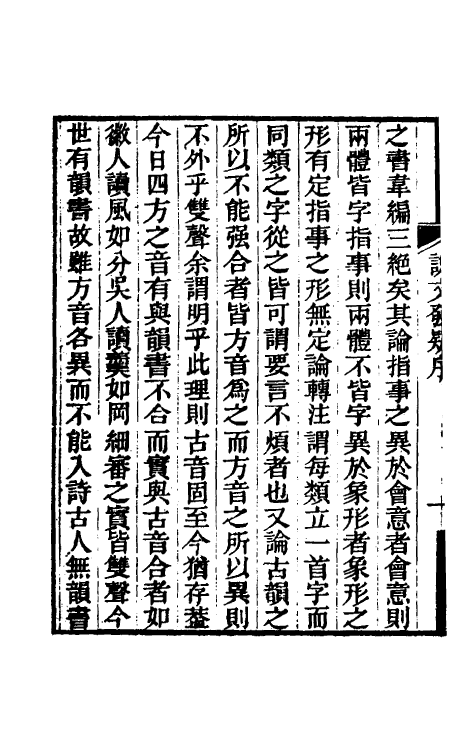 說文發疑序
之書韋編三絶矣其論指事之異於會意者會意則
兩體皆字指事則兩體不皆字異於象形者象形之
形有定指事之形無定論轉注謂每類立一首字而
同類之字從之皆可謂要言不煩者也又論古韻之
所以不能强合者皆方音爲之而方音之所以異則
不外乎雙聲余謂明乎此理則古音固至今猶存葢
今日四方之音有與韻書不合而實與古音合者如
徽人讀風如分吳人讀龔如岡細審之實皆雙聲今
世有韻書故雖方音各異而不能入詩古人無韻書